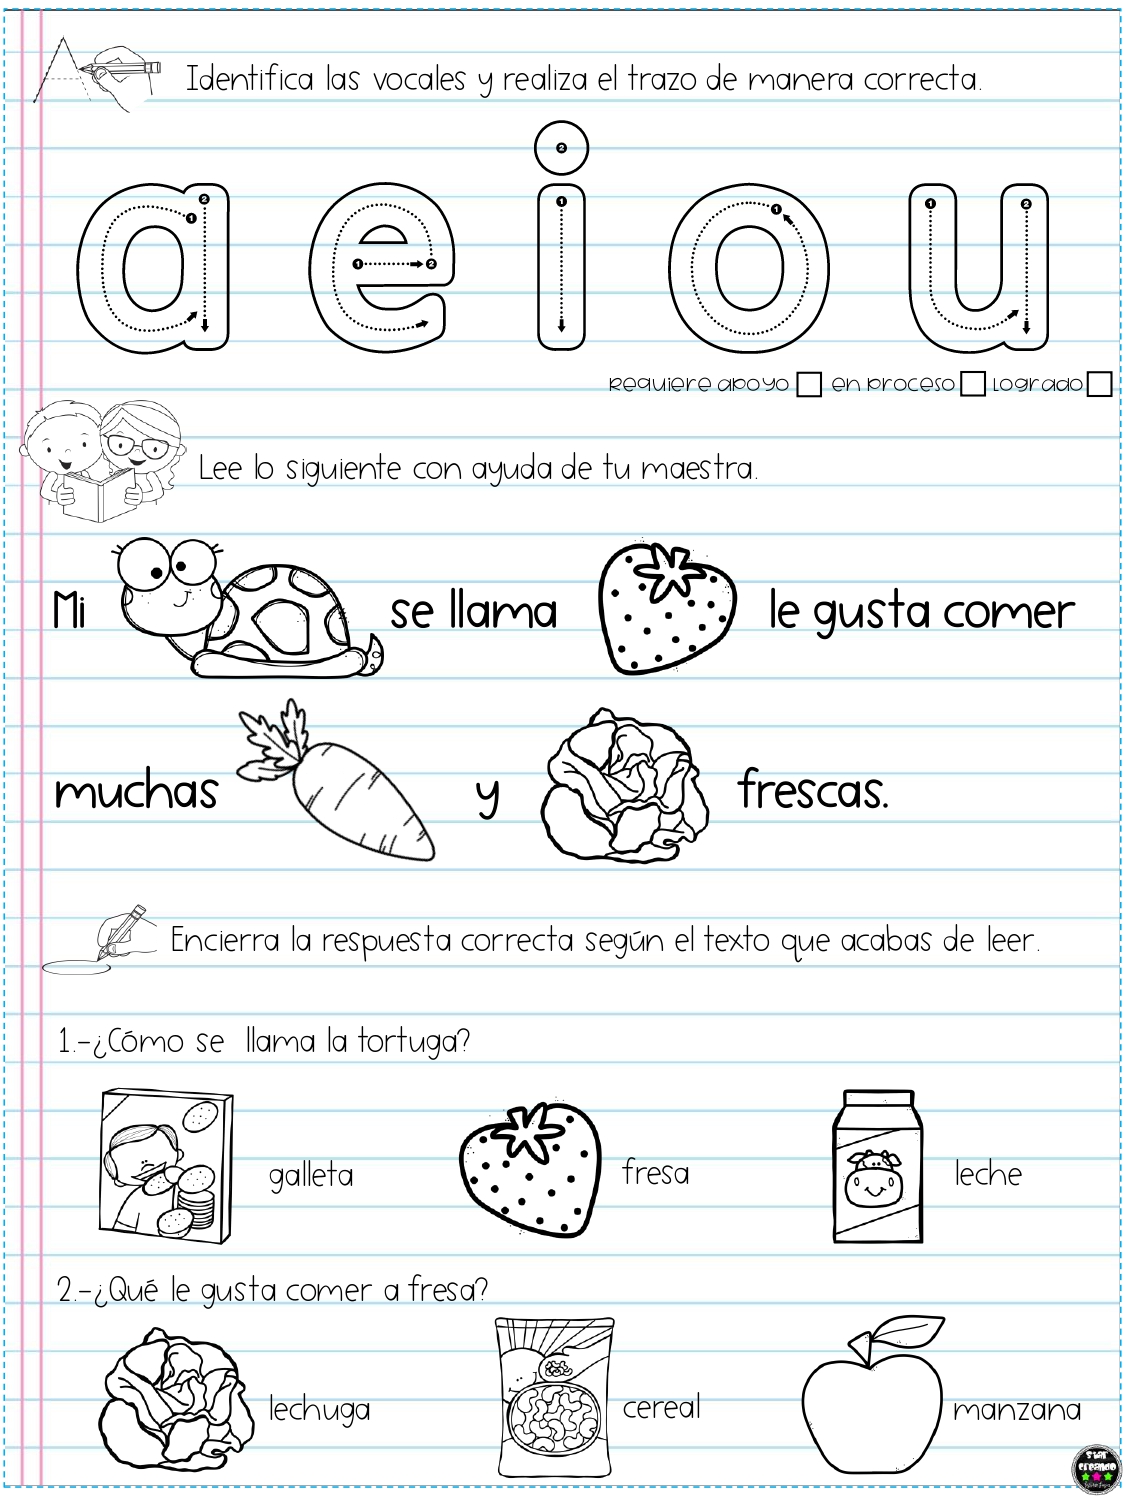 Identifica las vocales y realiza el trazo de manera correcta.
a e i o u
Requiere apoyo en proceso Logrado
Lee lo siguiente con ayuda de tu maestra.
Mi se llama le gusta comer
muchas y frescas.
Encierra la respuesta correcta según el texto que acabas de leer.
1.-¿Cómo se llama la tortuga?
galleta fresa leche
2.-¿Qué le gusta comer a fresa?
lechuga cereal manzana
Star
Creando